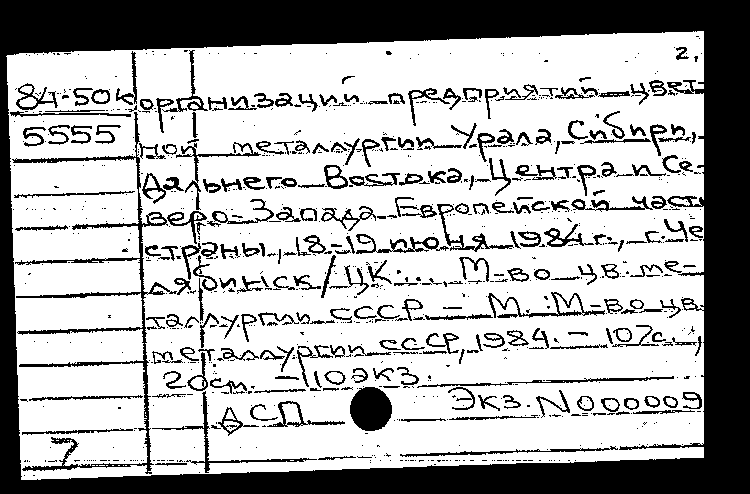 2.
84-50к организаций предприятий цвет-
5555 ной металлургии Урала, Сибири,
Дальнего Востока, Центра и Се-
веро-Запада Европейской части
страны, 18-19 июня 1984 г., г. Че
лябинск / ЦК:... М-во цв. ме-
таллургии СССР. – М.: М-во цв.
металлургии СССР, 1984. – 107с.;
20см. – 110экз.
ДСП Экз. N000009
7